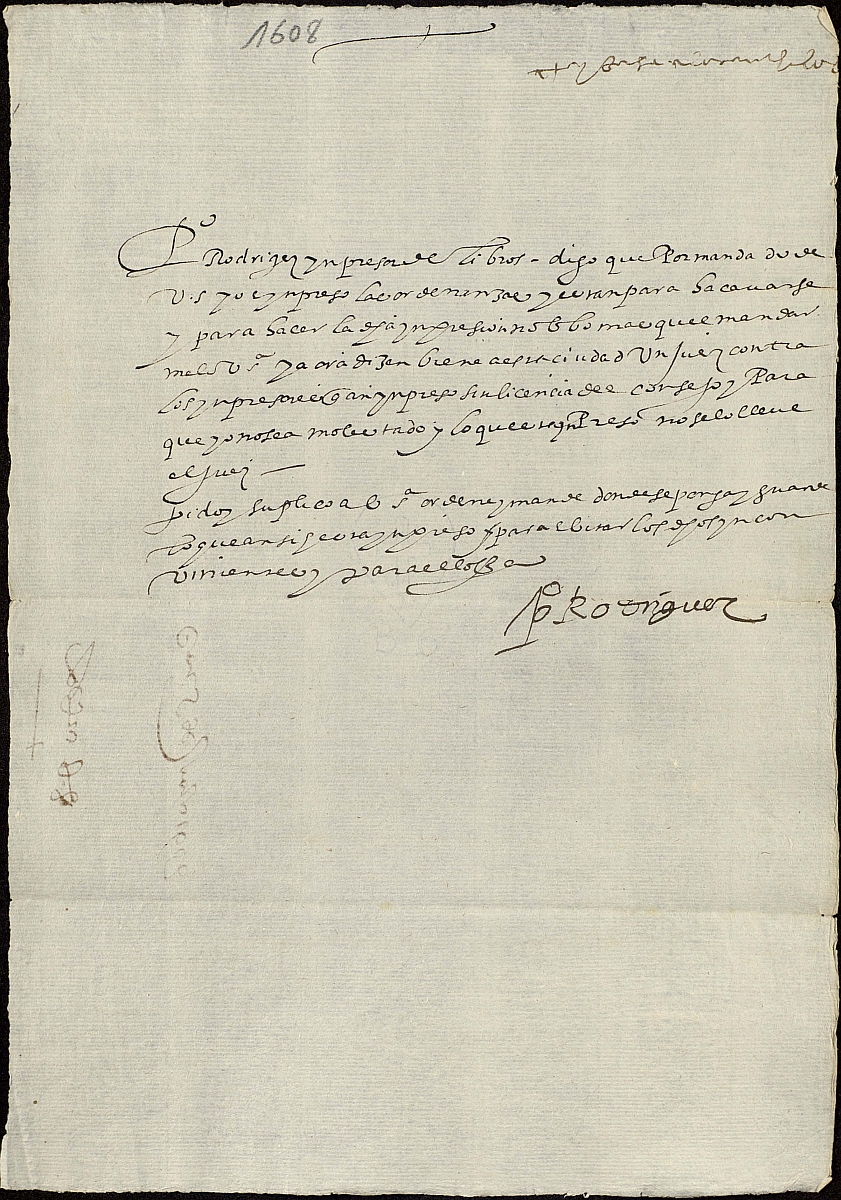 1608
Pº Rodrigez ynpresor de libros - digo que Por manda do de
V. S. yo e ynpreso las ordenanzas y estan para acavarse
y para hacer la dha ynpresion no ubo mas que mandar
melo V Sª y aora dizen biene a esta ciudad Un Juez contra
los ynpresores q an ynpreso sin licencia del consejo y Para
que yo no sea molestado y lo que esta ynPreso no se lo lleve
el Juez
pido y suplico a V Sª ordene y mande donde se ponga y guarde
lo que ansi esta ynpreso para ebitar los dhos yncon
vinientes y para ello &
Pº Rodriguez